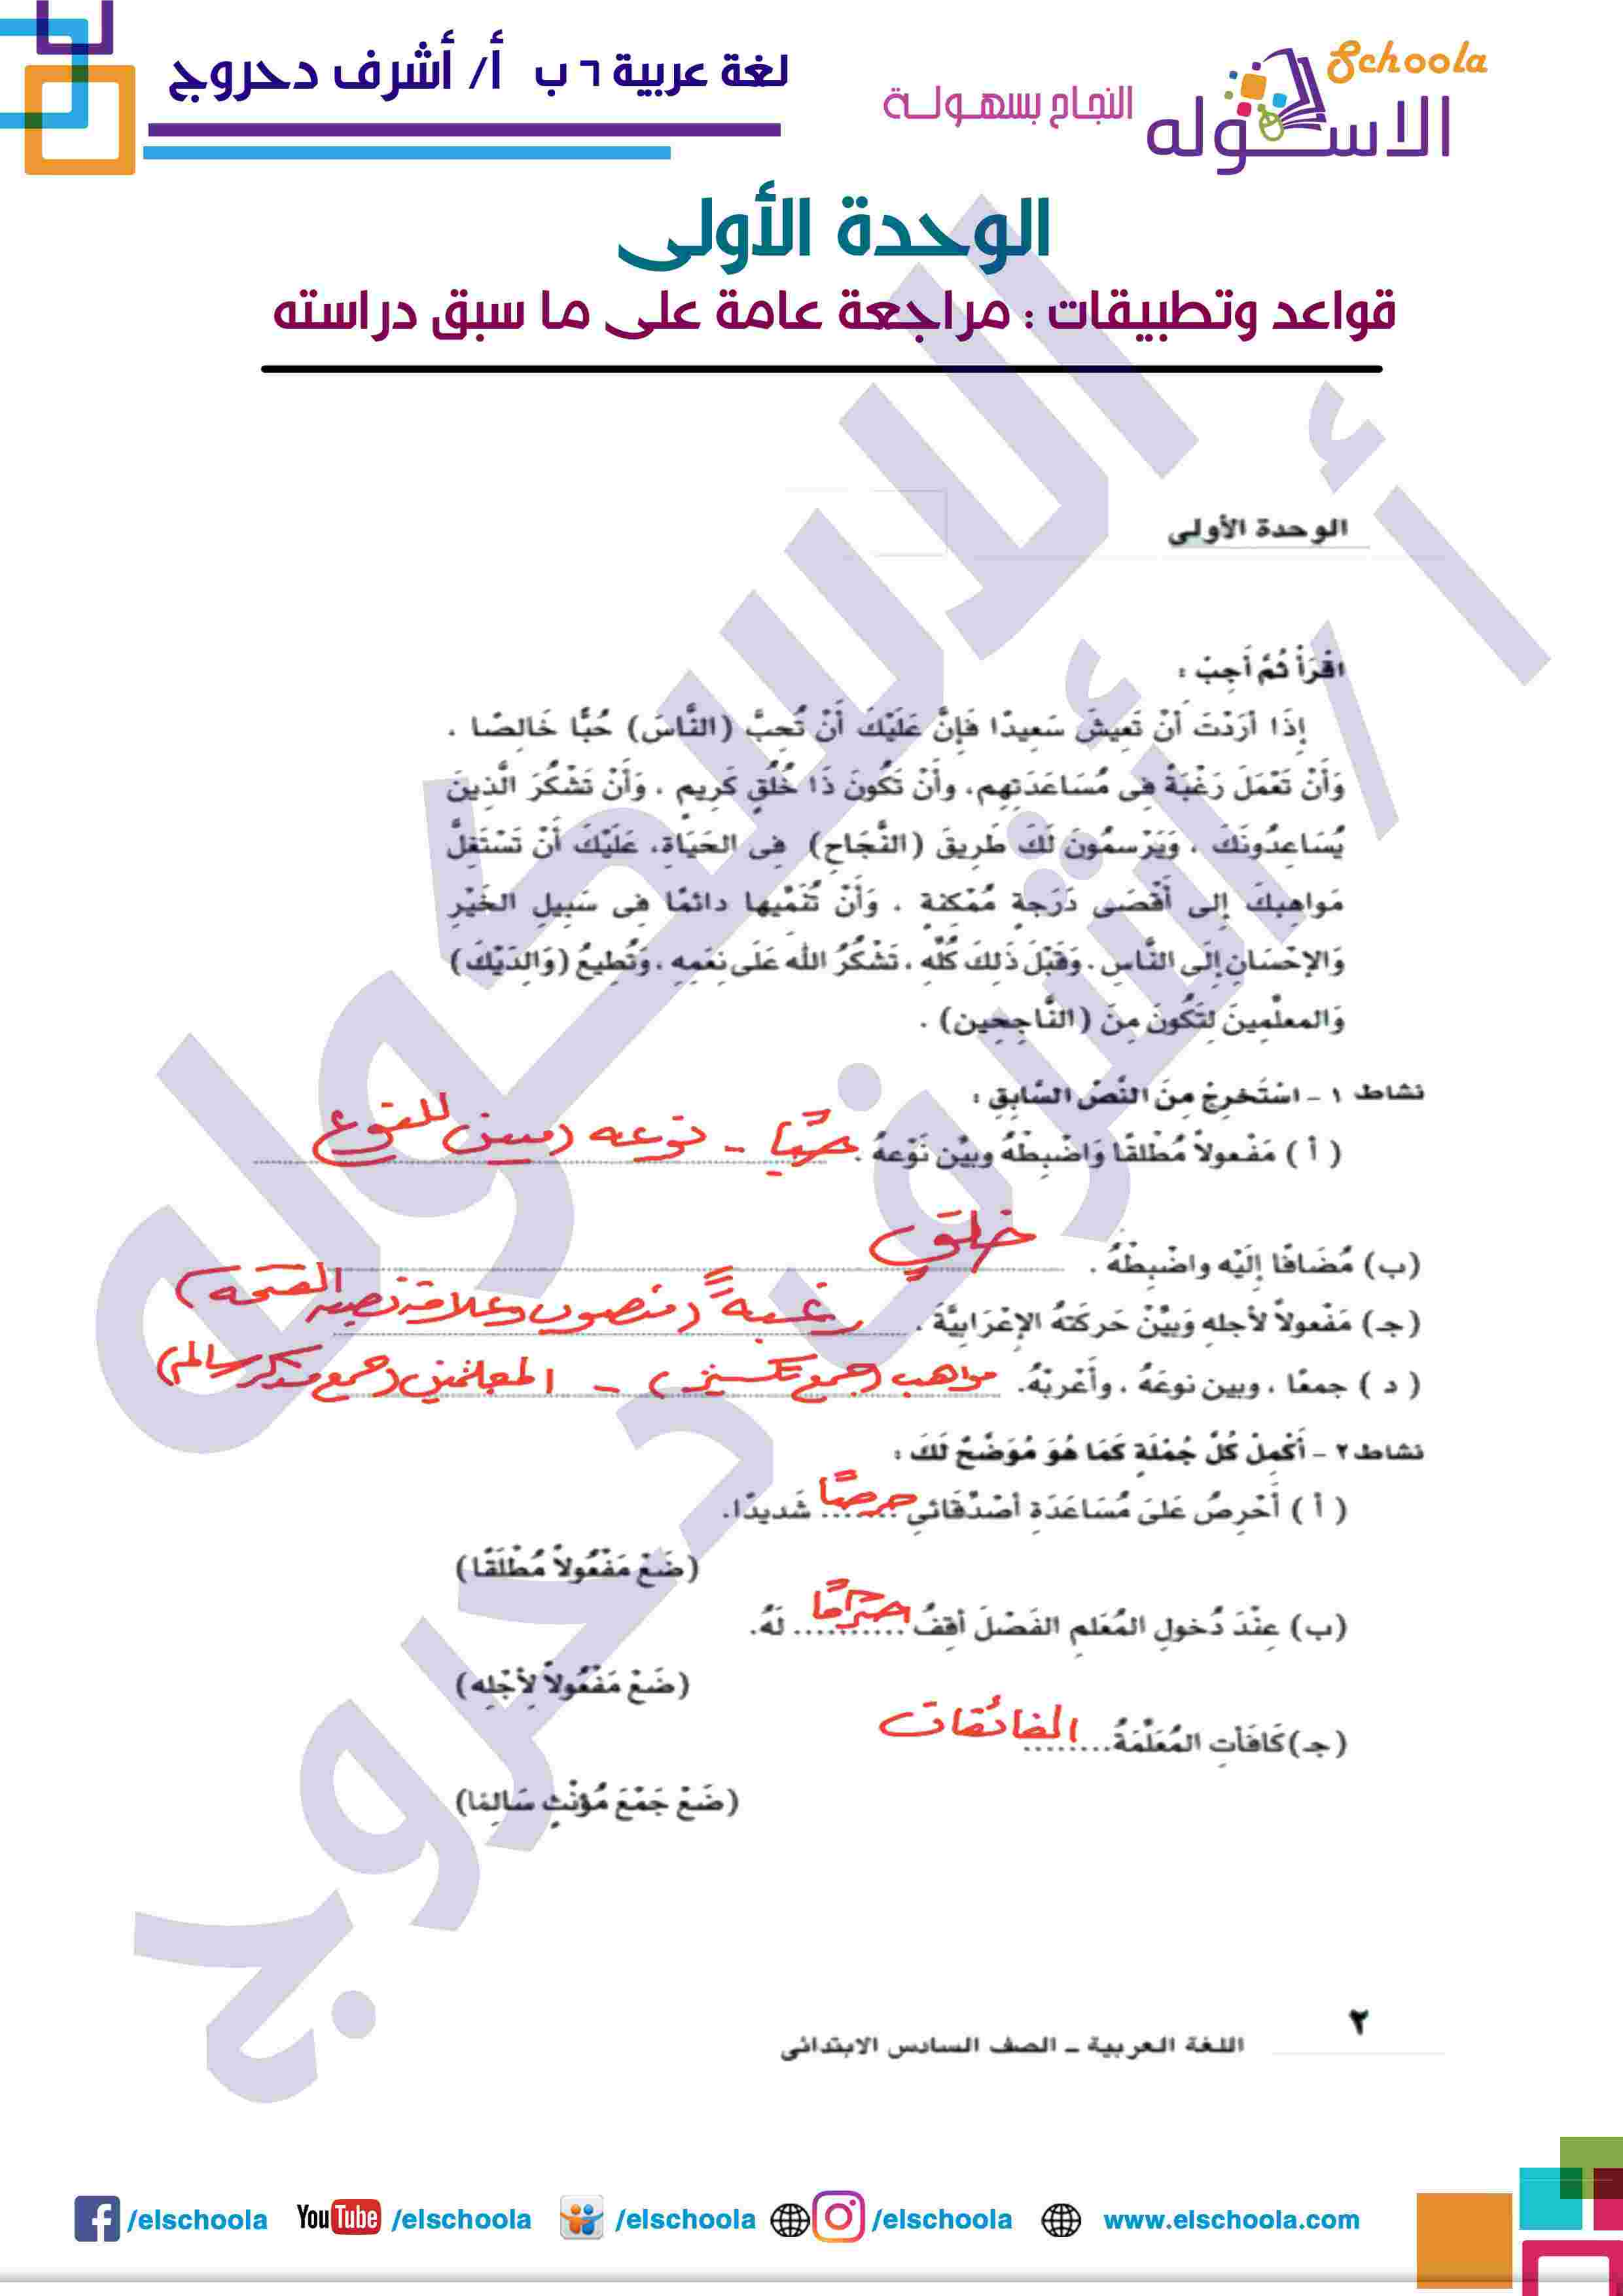 لغة عربية ٦ ب أ/ أشرف دحروج
Schoola
الاسكوله
النجاح بسهولة
الوحدة الأولى
قواعد وتطبيقات : مراجعة عامة على ما سبق دراسته
الوحدة الأولى
اقْرَأْ ثُمَّ أَجِبْ :
إِذَا أَرَدْتَ أَنْ تَعِيشَ سَعِيدًا فَإِنَّ عَلَيْكَ أَنْ تُحِبَّ (النَّاسَ) حُبًّا خَالِصًا .
وَأَنْ تَعْمَلَ رَغْبَةً فِى مُسَاعَدَتِهِم، وأَنْ تَكُونَ ذَا خُلُقٍ كَرِيمٍ ، وَأَنْ تَشْكُرَ الَّذِينَ
يُسَاعِدُونَكَ ، وَيَرْسمُونَ لَكَ طَرِيقَ (النَّجَاحِ) فِى الحَيَاةِ، عَلَيْكَ أَنْ تَسْتَغِلَّ
مَواهِبكَ إِلى أَقْصَى دَرَجةٍ مُمْكنةٍ ، وَأَنْ تُنَمِّيها دائمًا فى سَبِيلِ الخَيْرِ
وَالإحْسَانِ إِلَى النَّاسِ، وَقَبْلَ ذَلِكَ كُلِّهِ ، تَشْكُرُ الله عَلَى نِعَمِهِ ، وَتُطِيعُ (وَالِدَيْكَ)
وَالمعلِّمِينَ لِتَكُونَ مِنَ (النَّاجِحِين) .
نشاط ١ - اسْتَخرِجْ مِنَ النَّصِّ السَّابِقِ :
( أ ) مَفْعولاً مُطْلقًا وَاضْبِطْهُ وبيِّن نَوْعهُ . حبًّا - نوعه (مبين للنوع)
(ب) مُضَافًا إِلَيْه واضْبِطْهُ . خلقٍ
(جـ) مَفْعولاً لأجلهِ وَبيِّنْ حَركتهُ الإعْرَابيَّةَ . رغبةً (منصوب وعلامة نصبه الفتحة)
( د ) جمعًا ، وبين نوعَهُ ، وأَعْربْهُ. مواهب (جمع تكسير) - المعلمين (جمع مذكر سالم)
نشاط ٢ - أَكْمِلْ كُلَّ جُمْلَةٍ كَمَا هُوَ مُوَضَّحٌ لَكَ :
( أ ) أَحْرِصُ عَلىَ مُسَاعَدَةِ أَصْدِقَائي حرصًا شَديدًا.
(ضَعْ مَفْعُولاً مُطْلَقًا)
(ب) عِنْدَ دُخولِ المُعَلمِ الفَصْلَ أَقِفُ احترامًا لَهُ.
(ضَعْ مَفْعُولاً لِأَجْلِه)
(جـ) كَافَأَتِ المُعَلِّمَةُ الفائقات
(ضَعْ جَمْعَ مُؤنَّثٍ سَالِمًا)
٢
اللغة العربية - الصف السادس الابتدائى
/elschoola YouTube /elschoola /elschoola /elschoola www.elschoola.com
الاسكوله
أ / أشرف دحروج